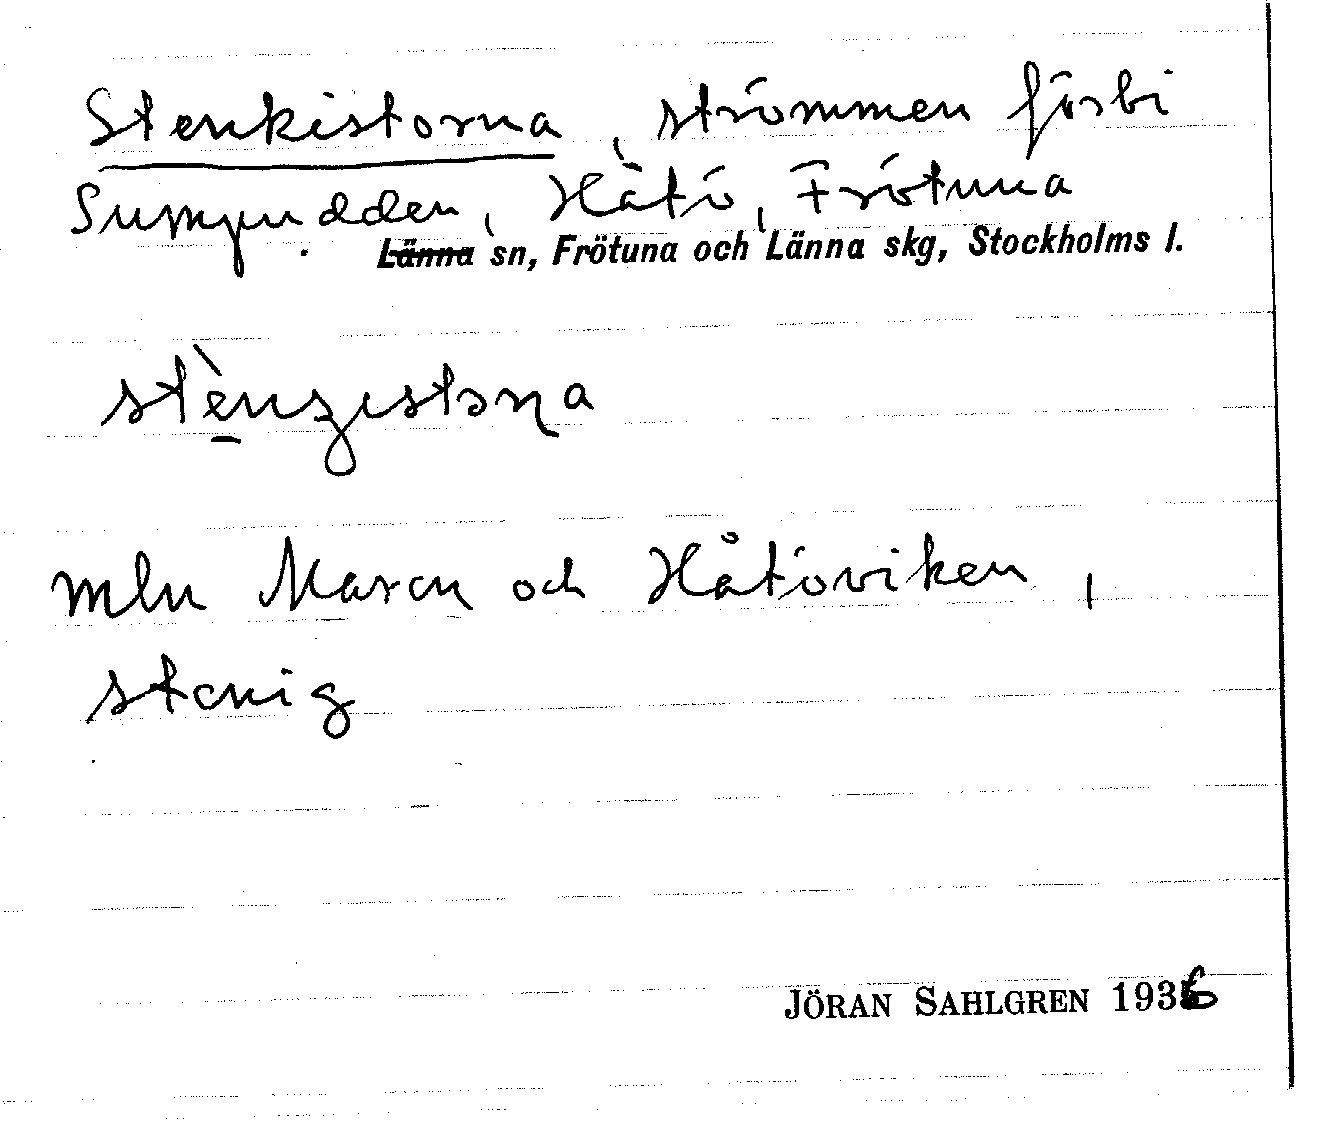 Stenkistorna, strömmen förbi
Sumpudden, Håtö, Frötuna
Länna sn, Frötuna och Länna skg, Stockholms l.
mln Maren och Håtöviken,
stenig
JÖRAN SAHLGREN 1936